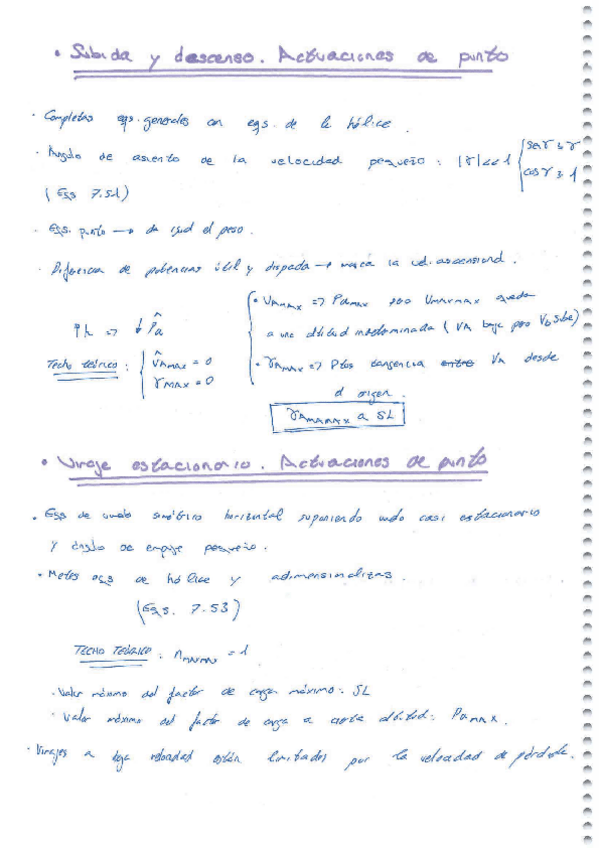 • Subida y descenso. Actuaciones de punto
· Completas eqs. generales con eqs. de la hélice.
· Ángulo de asiento de la velocidad pequeño: |γ|<<1 { sen γ ≃ γ
cos γ ≃ 1
(Eqs 7.51)
· Eqs. punto → da igual el peso.
· Diferencia de potencias útil y disipada → marca la vel. ascensional.
• VAMAX => PAMAX pero UMAXMAX queda
↑h => ↓ P̂a
a una altitud indeterminada (VA baja pero Vb sube)
Techo teórico: { V̂AMAX = 0
γMAX = 0
• γAMAX => Ptos tangencia VA desde
el origen.
γAMAMAX a SL
• Viraje estacionario. Actuaciones de punto
· Eqs de vuelo simétrico horizontal suponiendo vuelo casi estacionario
y ángulo de empuje pequeño.
• Metes eqs de hélice y adimensionalizas.
(Eqs. 7.53)
TECHO TEÓRICO: nMAXMAX = 1
· Valor máximo del factor de carga máximo: SL
· Valor máximo del factor de carga a cierta altitud: PaMAX.
· Virajes a baja velocidad están limitados por la velocidad de pérdida.